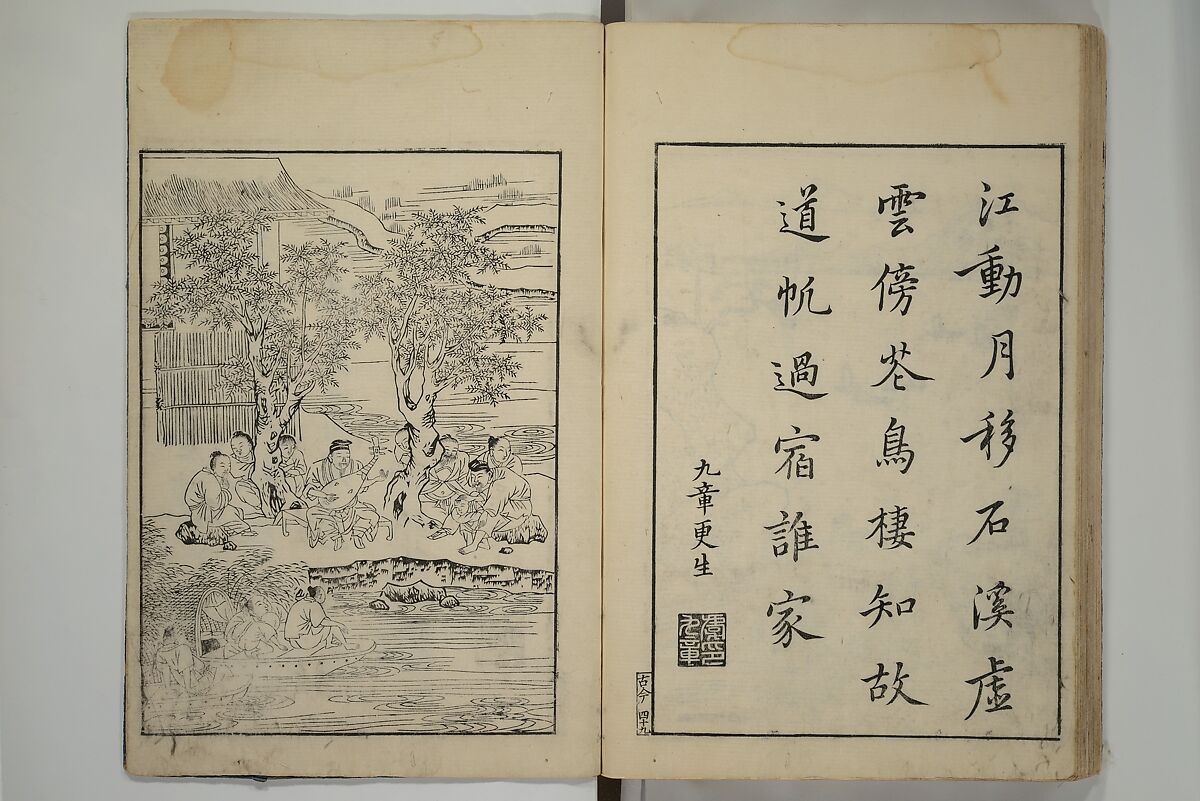 江動月移石溪虚
雲傍芲鳥棲知故
道帆過宿誰家
九章更生
九章
古今 四十九